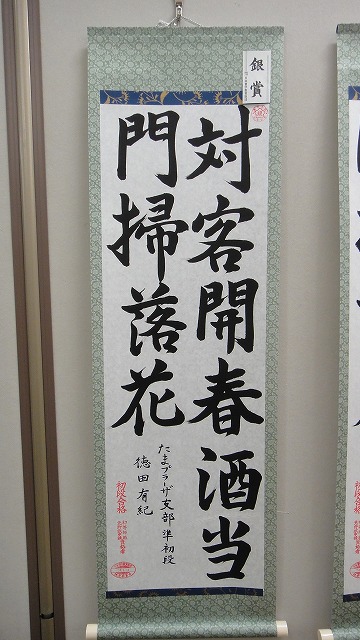 銀賞
対客開春酒当
門掃落花
たまプラーザ支部 準初段
徳田有紀
初段合格